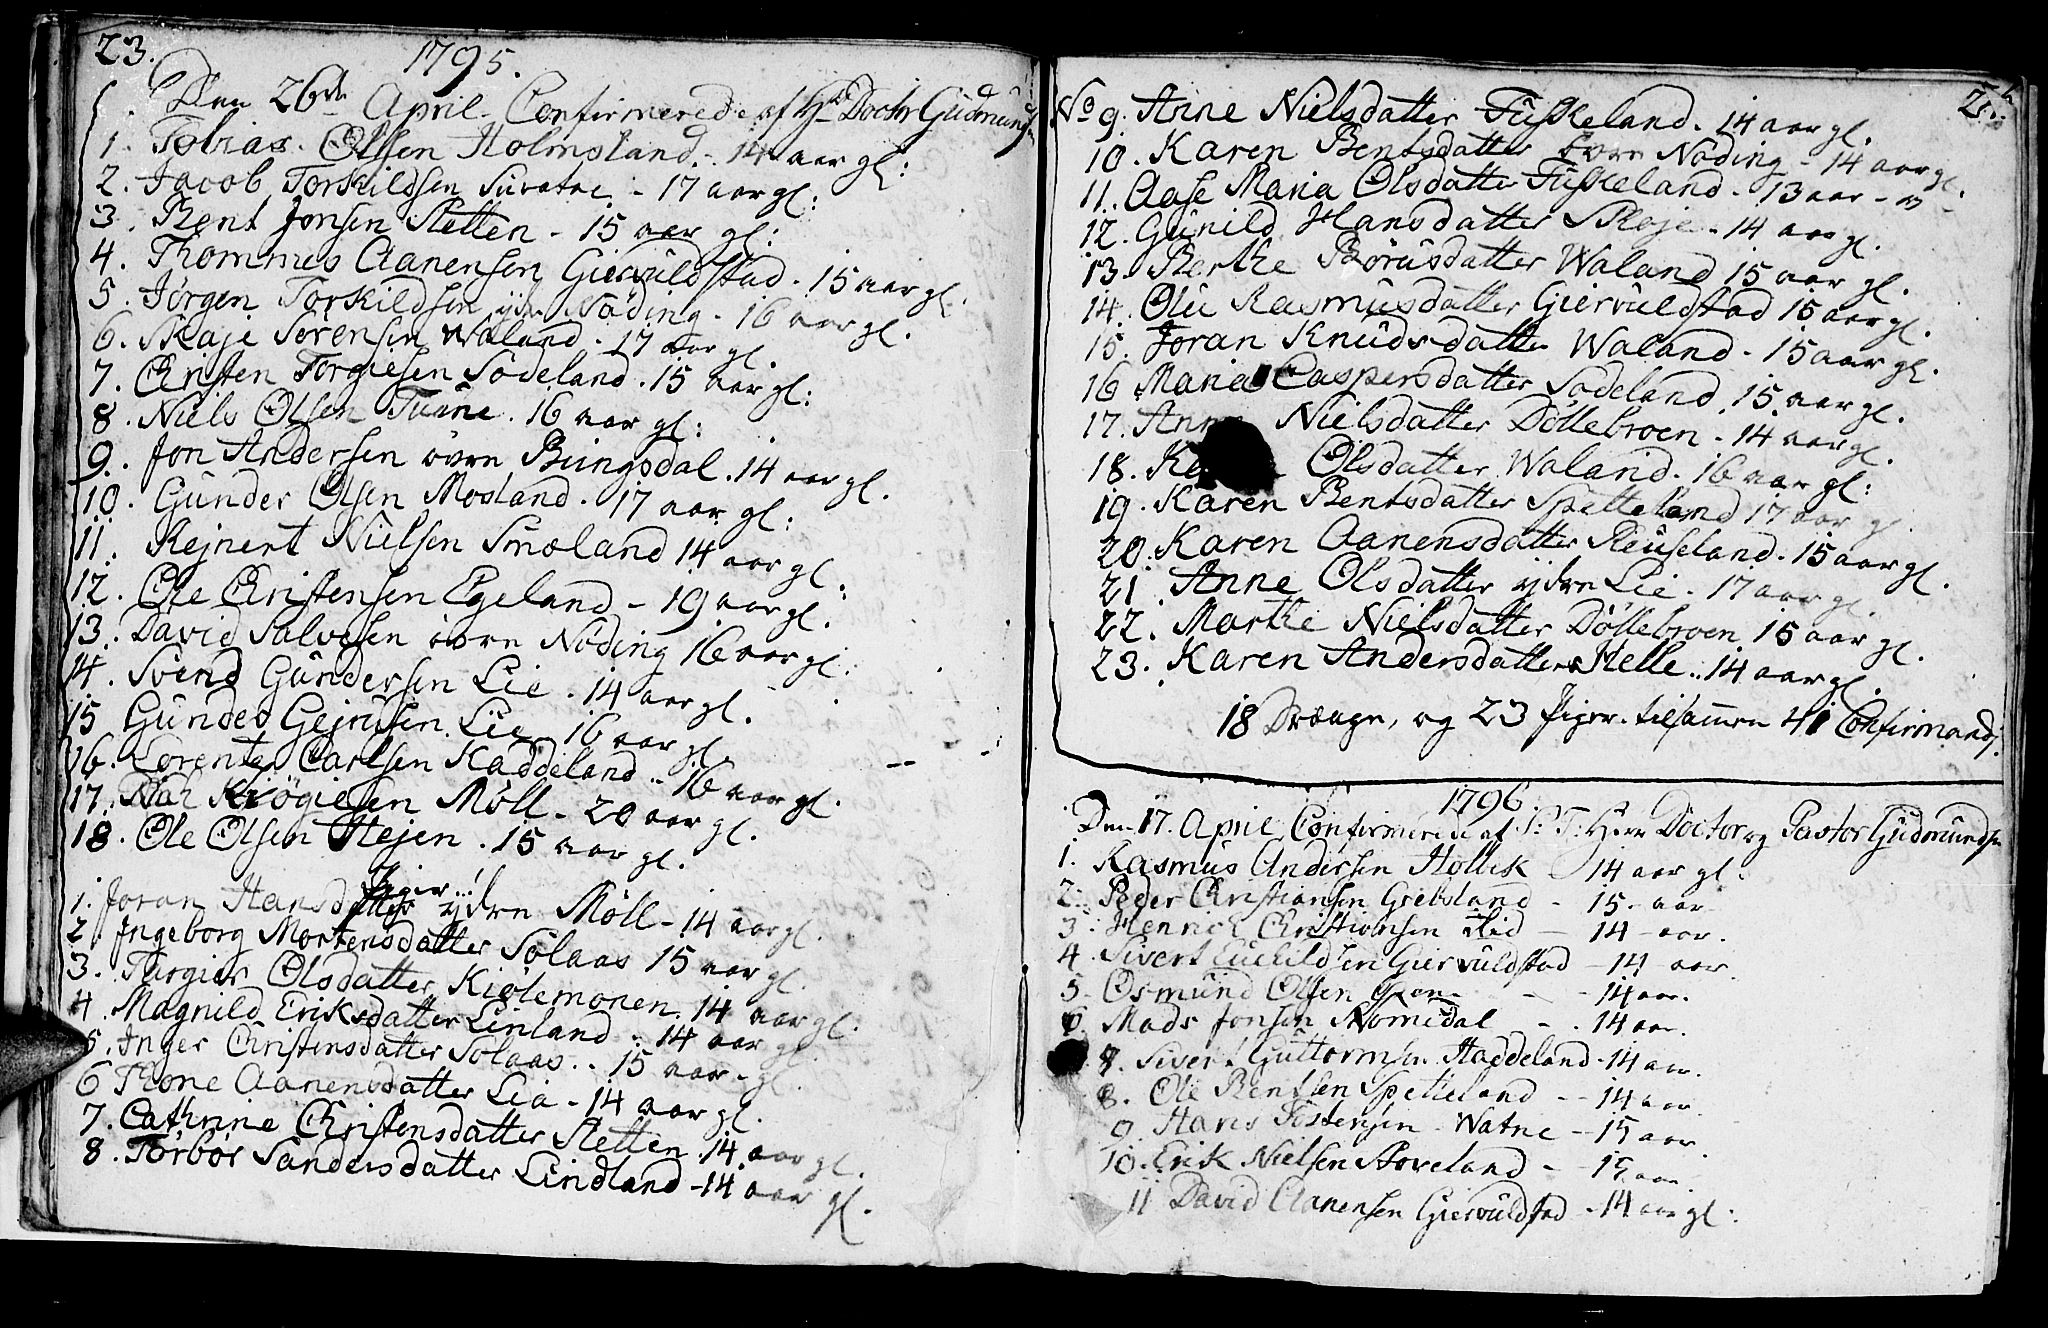 23.
1795.
Den 26de April Confirmerede af Hr Doctr Gudmunds
1. Tobias Olsen Holmsland. 14 aar gl:
2. Jacob Torkildsen - 17 aar gl:
3. Bent Jonsen Stetten - 15 aar gl:
4. Thommes Aanensen Giervuldstad. 15 aar gl.
5. Jörgen Torkildsen ydre Nöding. 16 aar gl.
6. Skaje Sörensen Waland. 17 aar gl.
7. Christen Torgiesen Södeland. 15 aar gl:
8. Niels Olsen Tunne. 16 aar gl:
9. Jon Andersen övre Bringsdal. 14 aar gl.
10. Gunder Olsen Mosland. 17 aar gl:
11. Rejnert Nielsen Smæland 14 aar gl.
12. Ole Christensen Egeland - 19 aar gl.
13. David Salvesen övre Nöding 16 aar gl:
14. Svend Gundersen Lie. 14 aar gl.
15 Gunder Lie 16 aar gl.
16. Lorents Carlsen Haddeland. 16 aar gl.
17. Kiögiesen Möll - 20 aar gl.
18. Ole Olsen Stejen. 15 aar gl.
Piger:
1. Joran Hansdatter ydre Möll - 14 aar gl.
2. Ingeborg Mortensdatter Solaas 15 aar gl.
3. Turgier Olsdatter Kiölemonen. 14 aar gl.
4. Magnild Eriksdatter Linland. 14 aar gl.
5. Inger Christensdatter Solaas. 15 aar gl.
6 Thone Aanensdatter Lia - 14 aar gl.
7. Cathrine Christensdatter Stetten 14. aar gl.
8. Törbor Sandersdatter Lindland - 14 aar gl.
No 9. Anne Nielsdatter Fuskeland. 14 aar gl.
10. Karen Bentsdatter övre Nöding - 14 aar gl.
11. Aase Maria Olsdatter Fuskeland - 13 aar
12. Gunild Hansdatter Skoje. 14 aar gl.
13. Berthe Börusdatter Waland 15 aar gl.
14. Olu Rasmusdatter Giervuldstad 15 aar gl.
15. Joran Knudsdatter Waland. 15 aar gl.
16 Maria Caspersdatter Södeland. 15. aar gl.
17. Anne Nielsdatter Döllebroen. 14 aar gl.
18. Olsdatter Waland. 16 aar gl:
19. Karen Bentsdatter Spetteland 17 aar gl
20. Karen Aanensdatter Steuseland. 15 aar gl.
21. Anne Olsdatter ydre Lie. 17 aar gl.
22. Marthe Nielsdatter Döllebroen 15 aar gl.
23. Karen Andersdatter Helle. 14 aar gl.
18 Drænge, og 23 Piger. tilsamen 41 Confirmand:
1796.
Den 17. April Confirmerede af S: T: Herr Doctor og Pastor Gudmundsen
1. Rasmus Andersen Hollek 14 aar gl.
2. Peder Christiansen Grebsland - 15. aar
3. Henrick Christiansen - 14 aar.
4. Sivert Giervuldstad - 14 aar.
5. Osmund Olsen - 14 aar.
6. Mads Jonsen Homedal - 14 aar.
7. Sivert Guttormsen Haddeland - 14 aar.
8. Ole Bentsen Spetteland - 14 aar.
9. Hans Tostensen Watne - 15 aar.
10. Erik Nielsen Stoveland - 15 aar.
11 David Aanensen Giervuldstad - 14 aar gl: